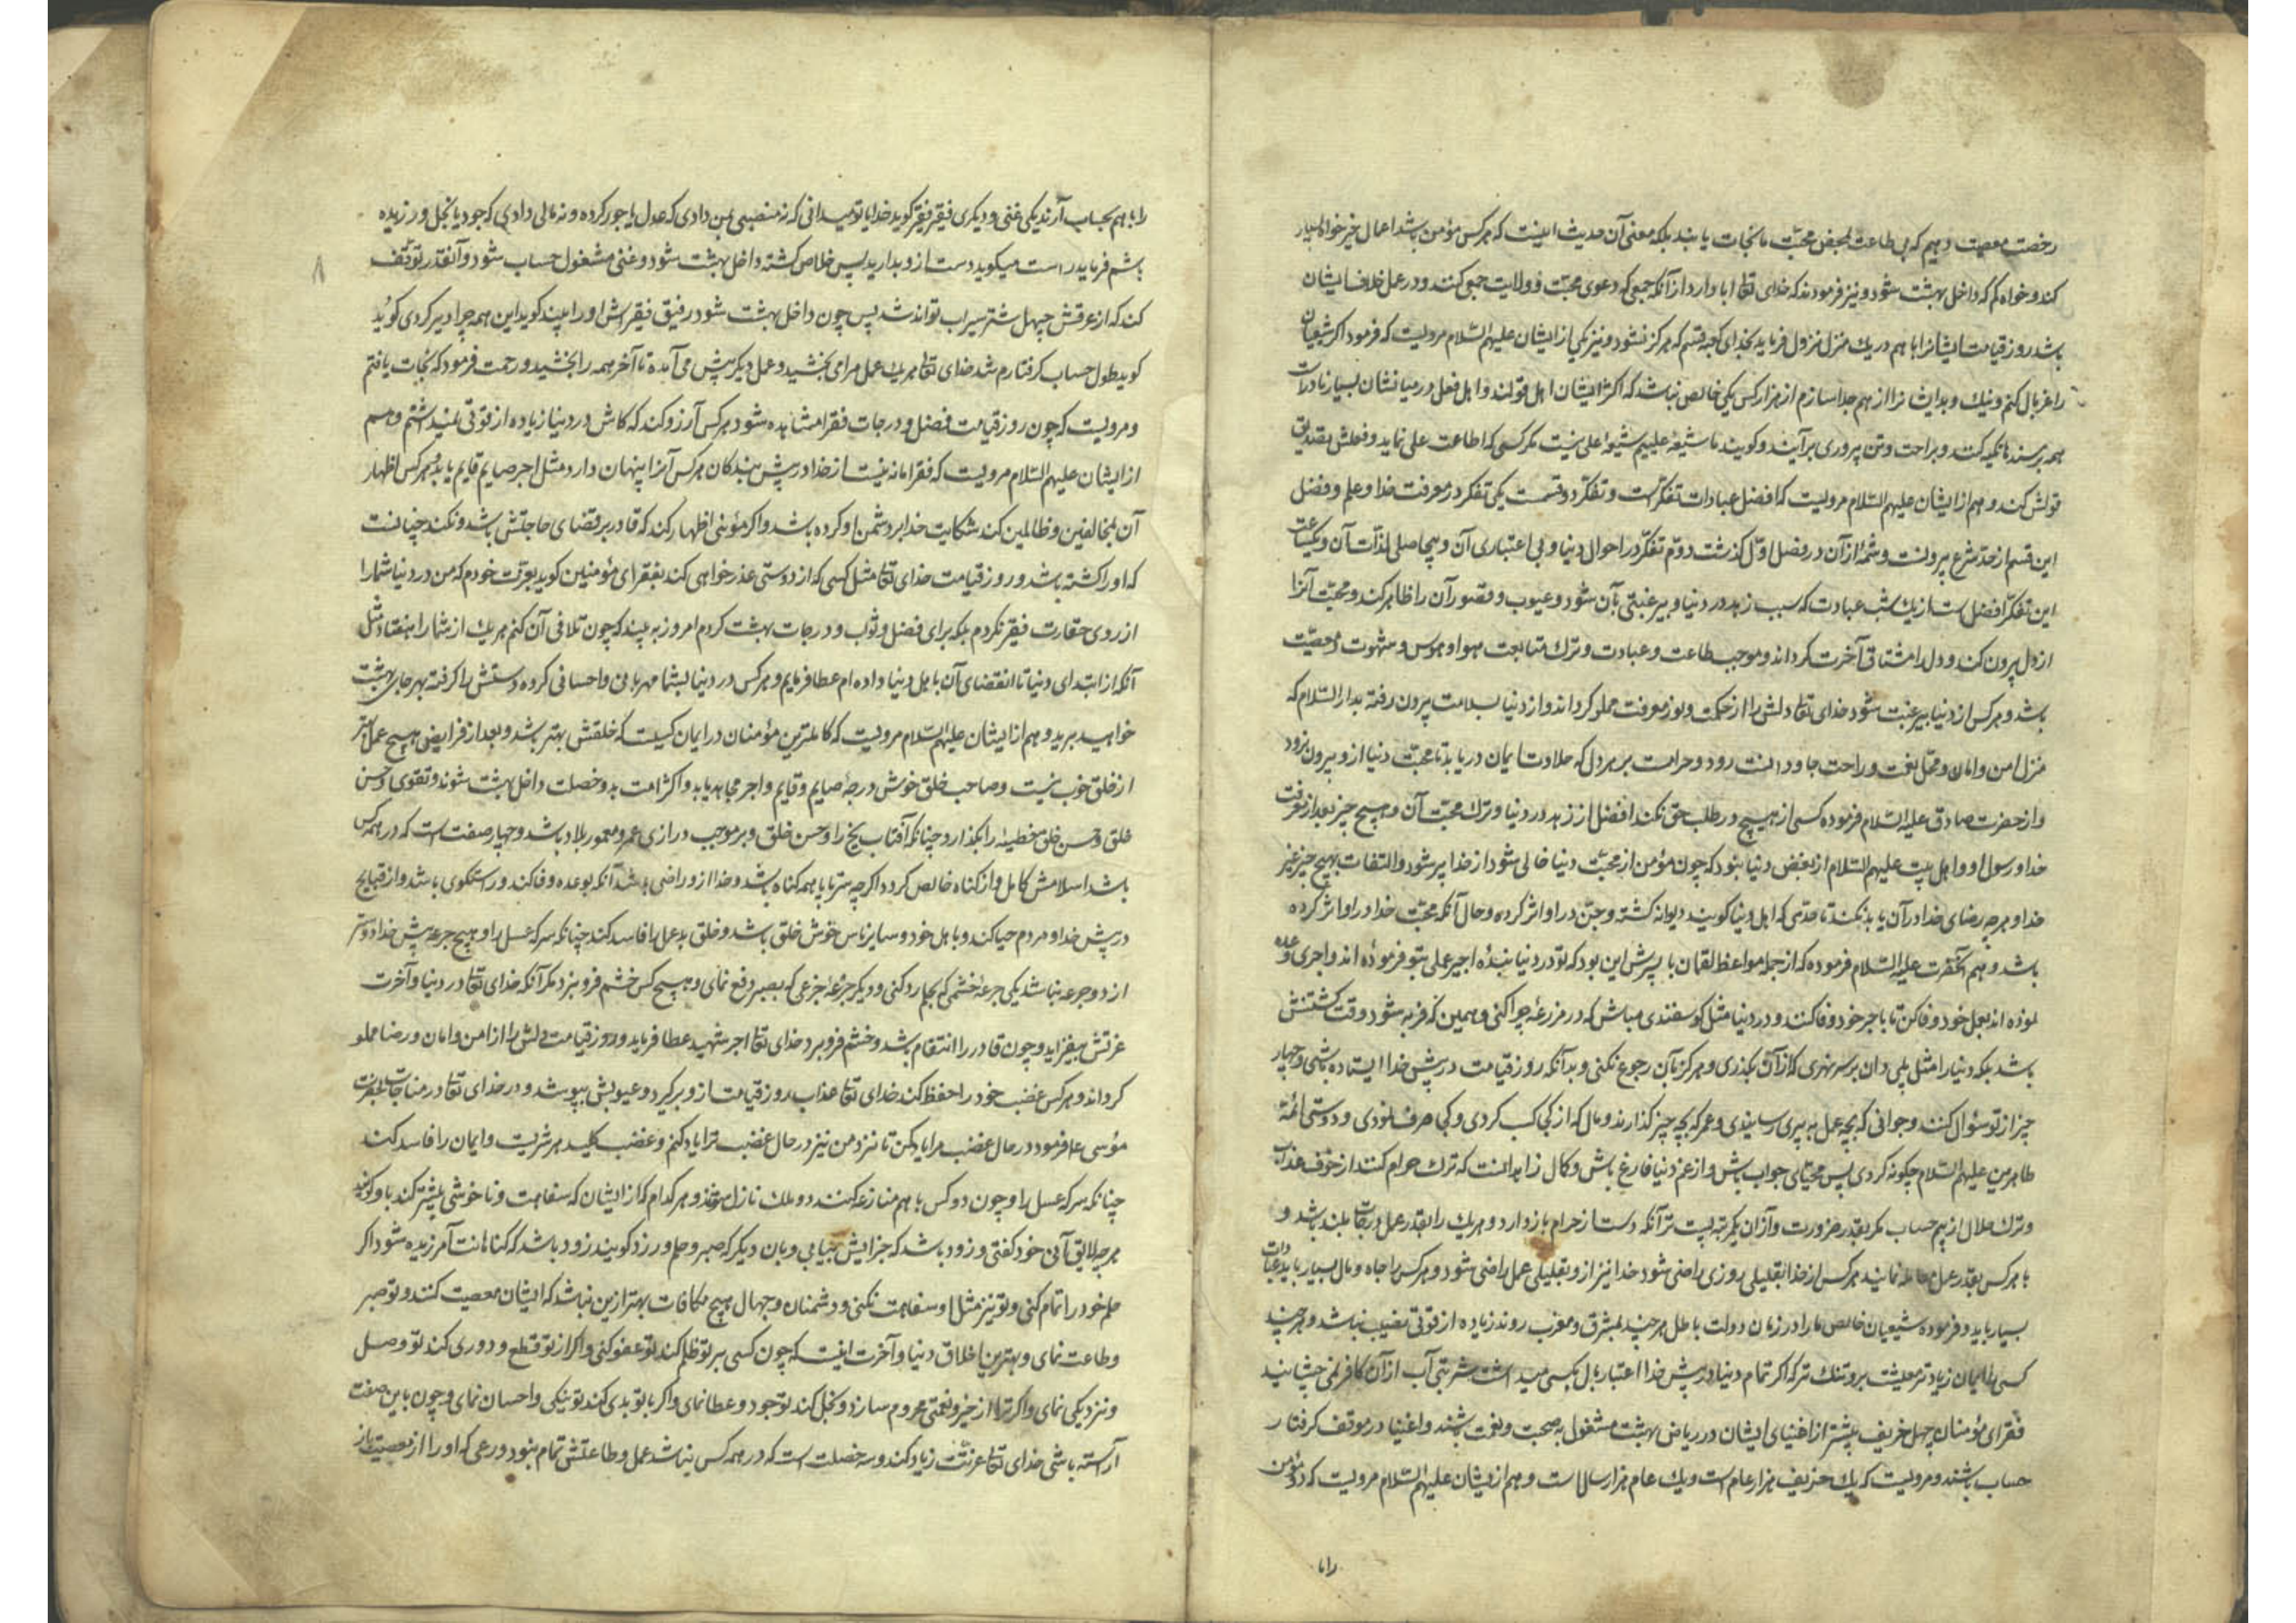 رخصت معصیت دهیم که بی طاعت بمحض محبّت ما نجات یابند بلکه معنی آن حدیث اینست که هر کس مؤمن باشد اعمال خیر خواه بسیار
کند و خواه کم که داخل بهشت شود و نیز فرمودند که خدای تعالی ابا وارد از آنکه جمعی که دعوی محبّت و ولایت جمعی کنند و در عمل خلاف ایشان
باشد روز قیامت ایشانرا با هم در یک منزل نزول فرماید بخدای کعبه قسم که هرگز نشود و نیز یکی از ایشان علیهم السّلام مرویست که فرمود اگر شیعیان
را غربال کنم و نیک و بد ایشانرا از هم جدا سازم از هزار کس یکی خالص نباشد که اکثر ایشان اهل قولند و اهل فعل در میانشان بسیار نادرات
همه بر سندها تکیه کنند و براحت و تن پروری برآیند و گویند ما شیعۀ علییم شیعۀ علی نیست مگر کسی که اطاعت علی نماید و فعلش تصدیق
قولش کند و هم از ایشان علیهم السّلام مرویست که افضل عبادات تفکّر است و تفکّر دو قسمت یکی تفکر در معرفت خدا و علم و فضل
این قسم از حدّ شرع بیرونست و شمّۀ از آن در فصل اوّل گذشت دوّم تفکّر در احوال دنیا و بی اعتباری آن و بیحاصلی لذّات آن و یکساعت
این تفکّر افضل است از یک شب عبادت که سبب زهد در دنیا و بیرغبتی بآن شود و عیوب و قصور آن را ظاهر کند و محبّت آنرا
از دل بیرون کند و دل را مشتاق آخرت گرداند و موجب طاعت و عبادت و ترک متابعت هوا و هوس و شهوت و معصیّت
باشد و هر کس از دنیا بیرغبت شود خدای تعالی دلش را از حکمت و نور معرفت مملو گرداند و از دنیا بسلامت بیرون رفته بدار السّلام که
منزل امن و امان و محل نعمت و راحت جاودانست رود و حرامست بر هر دل که حلاوت ایمان دریابد تا محبّت دنیا ازو بیرون نرود
و از حضرت صادق علیه السّلام فرموده کسی از هیچ در طلب حق نکند افضل از زهد در دنیا و ترک محبّت آن و هیچ چیز بعد از معرفت
خدا و رسول او و اهل بیت علیهم السّلام از بغض دنیا نبود که چون مؤمن از محبّت دنیا خالی شود از خدا پر شود و التفات بهیچ چیز غیر
خدا و هر چه رضای خدا در آن یابد نکند تا حدّی که اهل دنیا گویند دیوانه گشته و جنّ در او اثر کرده و حال آنکه محبّت خدا در او اثر کرده
باشد و هم آنحضرت علیه السّلام فرموده که از جمله مواعظ لقمان با پسرش این بود که تو در دنیا بندۀ اجیر عملی بتو فرموده اند و اجری وعده
نموده اند بعمل خود وفا کن تا باجر خود وفا کنند و در دنیا مثل گوسفندی مباش که در مزرعۀ چرا کنی و همین که فربه شود وقت کشتنش
باشد بلکه دنیا را مثل پلی دان بر سر نهری که از آن بگذری و هرگز بآن رجوع نکنی و بدآنکه روز قیامت در پیش خدا ایستاده باشی و چهار
چیز از تو سؤال کنند و جوانی که بچه عمل به پیری رسانیدی و عمر که بچه چیز گذراندی و مال که از کی کسب کردی و کی صرف نمودی و دوستی ائمّۀ
طاهرین علیهم السّلام چگونه کردی پس مهیّای جواب باش و از غم دنیا فارغ باش و کمال زاهد آنست که ترک حرام کند از خوف عذاب
و ترک حلال از بیم حساب مگر بقدر ضرورت و از آن یکمرتبه پست تر آنکه دست از حرام باز دارد و هر یک را بقدر عمل درجات بلند باشد و
با هر کس بقدر عمل معامله نمایند هر کس از خدا بقلیلی روزی راضی شود خدا نیز ازو بقلیلی عمل راضی شود و هر کس را جاه و مال بسیار باید عبادات
بسیار باید و فرموده شیعیان خالص ما را در زمان دولت باطل هر چند بمشرق و مغرب روند زیاده از قوتی نصیب نباشد و هر چند
کسی را ایمان زیادتر معیشت برو تنک تر که اگر تمام دنیا در پیش خدا اعتبار بال مگسی میداشت شربتی آب از آن کافر نمی چشانید
فقرای مؤمنان چهل خریف پیشتر از اغنیای ایشان در ریاض بهشت مشغول به صحبت و نعمت باشند و اغنیا در موقف گرفتار
حساب باشند و مرویست که یک خریف هزار عام است و یک عام هزار سال است و هم از ایشان علیهم السّلام مرویست که دو مؤمن
را با
را با هم بحساب آرند یکی غنی و دیگری فقیر فقیر گوید خدایا تو میدانی که نه منصبی بمن دادی که عدل یا جور کرده و نه مالی دادی که جود یا بخل ورزیده
باشم فرماید راست میگوید دست ازو بدارید پس خلاص گشته داخل بهشت شود و غنی مشغول حساب شود و آنقدر توقّف
کند که از عرقش چهل شتر سیراب تواند شد پس چون داخل بهشت شود رفیق فقیرش او را بیند گوید این همه چرا دیر کردی گوید
گوید طول حساب گرفتارم شد خدای تعالی هر یک عمل مرا می بخشید و عمل دیگر پیش می آمد تا آخر همه را بخشید و رحمت فرمود که نجات یافتم
و مرویست که چون روز قیامت فضل و درجات فقرا مشاهده شود هر کس آرزو کند که کاش در دنیا زیاده از قوتی نمیداشتم و هم
از ایشان علیهم السّلام مرویست که فقر امانتیست از خدا در پیش بندگان هر کس آنرا پنهان دارد مثل اجر صایم قایم یابد و هر کس اظهار
آن بمخالفین و ظالمین کند شکایت خدا بر دشمن او کرده باشد و اگر مؤمنی اظهار کند که قادر بر قضای حاجتش باشد و نکند چنانست
که او را کشته باشد و روز قیامت خدای تعالی مثل کسی که از دوستی عذر خواهی کند بفقرای مؤمنین گوید بعزّت خودم که من در دنیا شما را
از روی حقارت فقیر نکردم بلکه برای فضل و ثواب و درجات بهشت کردم امروز ببینید که چون تلافی آن کنم هر یک از شما را هفتاد مثل
آنکه از ابتدای دنیا تا انقضای آن باهل دنیا داده ام عطا فرمایم و هر کس در دنیا بشما مهربانی و احسانی کرده دستش را گرفته بهر جای بهشت
خواهید برید و هم از ایشان علیهم السّلام مرویست که کاملترین مؤمنان در ایمان کسیست که خلقش بهتر باشد و بعد از فرایض هیچ عمل بهتر
از خلق خوب نیست و صاحب خلق خوش درجۀ صایم و قایم و اجر مجاهد یابد و اکثر امت بدو خصلت داخل بهشت شوند و تقوی و حسن
خلق و حسن خلق خطیئه را بگدازد چنانکه آفتاب یخ را و حسن خلق و بر موجب درازی عمر و معموری بلاد باشد و چهار صفت است که در همه کس
باشد اسلامش کامل و از گناه خالص گردد اگر چه سر تا پا همه گناه باشد و خدا ازو راضی باشد آنکه بوعده وفا کند و راستگوی باشد و از قبایح
در پیش خدا و مردم حیا کند و با اهل خود و سایر ناس خوش خلق باشد و خلق بد عمل را فاسد کند چنانکه سرکه عسل را و هیچ جرعه پیش خدا دوستر
از دو جرعه نباشد یکی جرعۀ خشمی که بحلم رد کنی و دیگر جرعۀ جزعی که بصبر دفع نمای و هیچ کس خشم فرو نبرد مگر آنکه خدای تعالی در دنیا و آخرت
عزتش بیفزاید و چون قادر را انتقام باشد و خشم فرو برد خدای تعالی اجر شهید عطا فرماید و روز قیامت دلش را از امن و امان و رضا مملو
گرداند و هر کس غضب خود را حفظ کند خدای تعالی عذاب روز قیامت ازو برگیرد و عیوبش بپوشد و در خدای تعالی در مناجات بحضرت
مؤسی ع فرمود در حال غضب مرا یاد کن تا نزد من نیز در حال غضب ترا یاد کنم و غضب کلید هر شریست و ایمان را فاسد کند
چنانکه سرکه عسل را و چون دو کس با هم منازعه کنند دو ملک نازل شوند و هر کدام که از ایشان که سفاهت و ناخوشی بیشتر کند باو گویند
هر چه لایق آنی خود گفتی و زود باشد که جزایش بیابی و بآن دیگر که صبر و حلم ورزد گویند زود باشد که گناهانت آمرزیده شود اگر
حلم خود را تمام کنی و تو نیز مثل او سفاهت نکنی و دشمنان و جهال هیچ مکافات بهتر ازین نباشد که ایشان معصیت کنند و تو صبر
و طاعت نمای و بهترین اخلاق دنیا و آخرت اینست که چون کسی بر تو ظلم کند تو عفو کنی و اگر از تو قطع و دوری کند تو وصل
و نزدیکی نمای و اگر ترا از خیر و نعمتی محروم سازد و بخل کند تو جود و عطا نمای و اگر با تو بدی کند تو نیکی و احسان نمای و چون باین صفت
آراسته باشی خدای تعالی عزّتت زیاد کند و سه خصلت است که در همه کس نباشد عمل و طاعتش تمام نبود ورعی که او را از معصیت باز